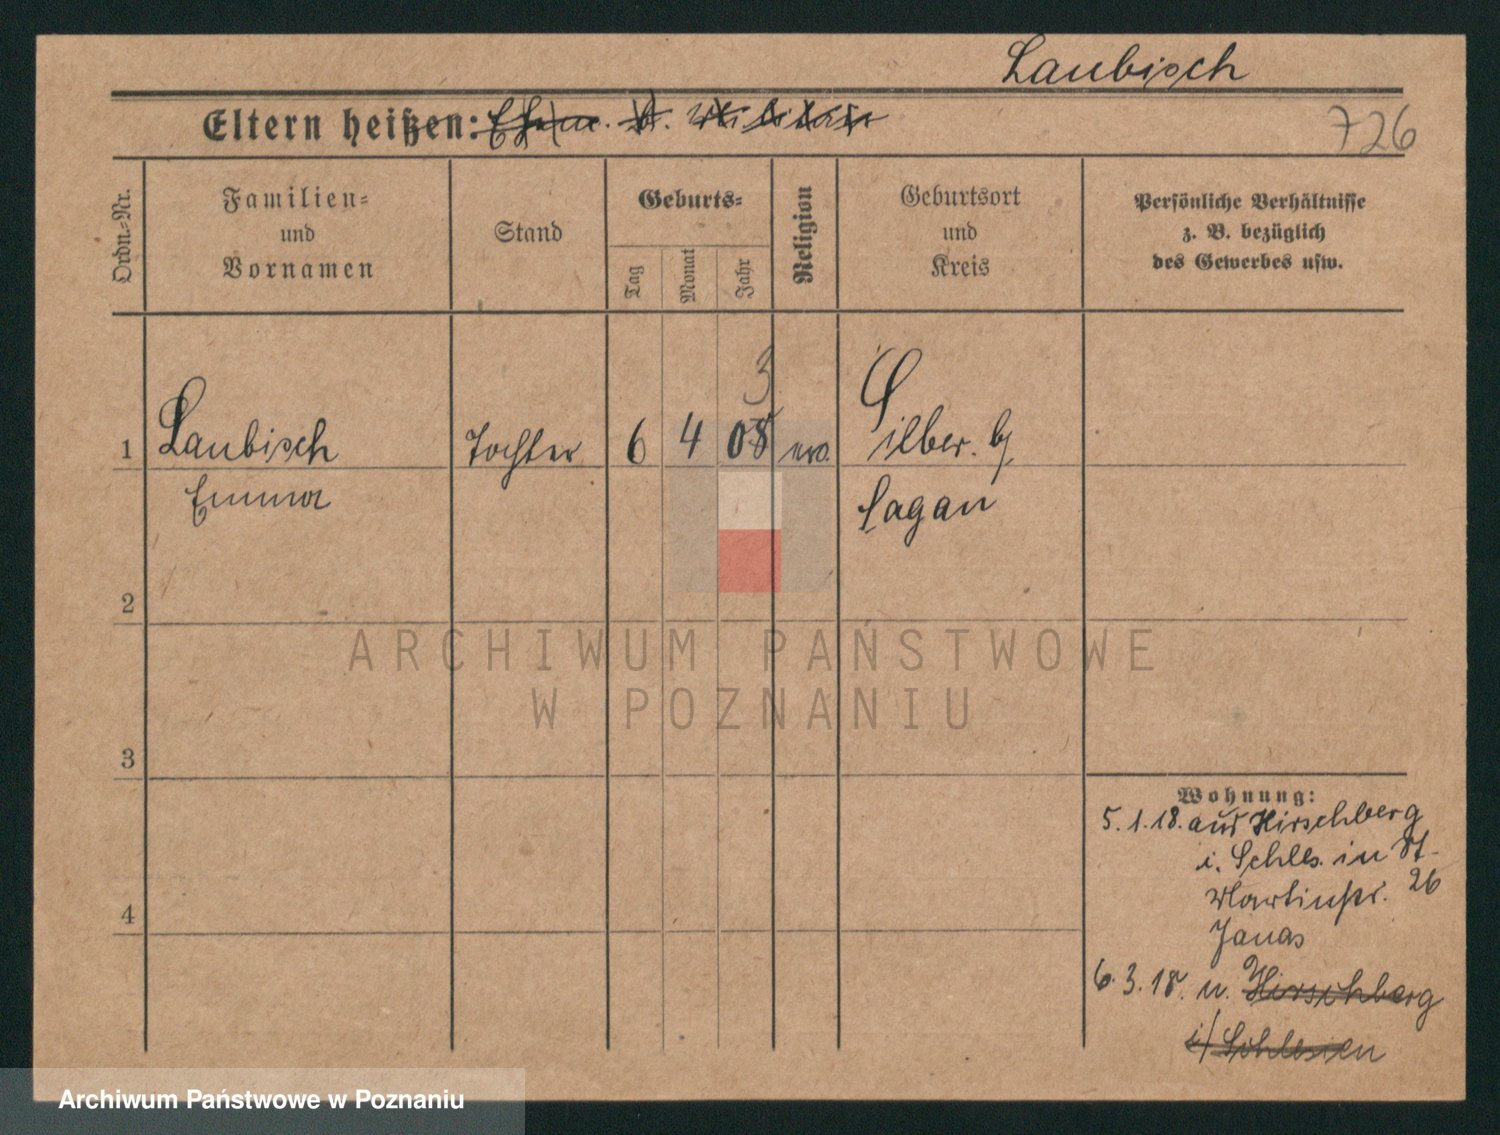 Laubisch
Eltern heißen:
726
Ordn.-Nr.
Familien-
und
Vornamen
Stand
Geburts-
Tag
Monat
Jahr
Religion
Geburtsort
und
Kreis
Persönliche Verhältnisse
z. B. bezüglich
des Gewerbes usw.
3
1 Laubisch Tochter 6 4 08 Silber. b/
Emma Sagan
2
3
4
Wohnung:
5.1.18. aus Hirschberg
i. Schles. in St.
Martinstr. 26
Janas
6.3.18. n. Hirschberg
i/ Schlesien
ARCHIWUM PAŃSTWOWE
W POZNANIU
Archiwum Państwowe w Poznaniu